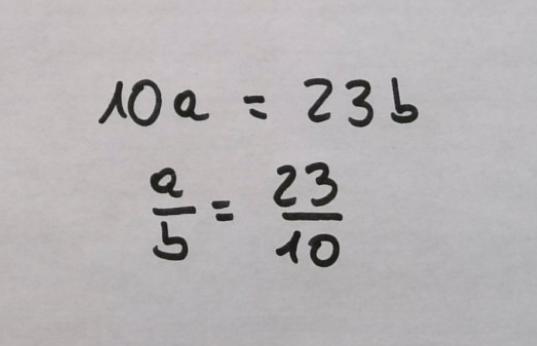 10a = 23b
a/b = 23/10